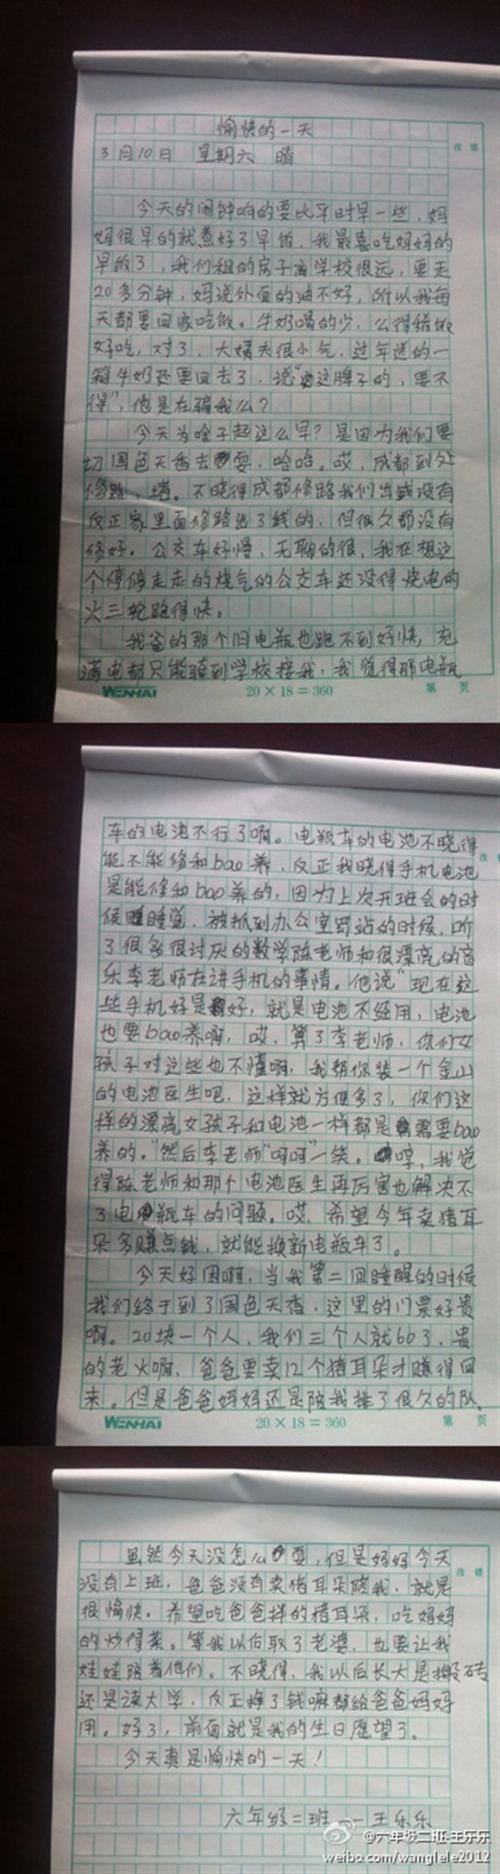 愉快的一天
3月10日 星期六 晴
今天的闹钟响的要比平时早一些，妈
妈很早的就煮好了早饭，我最喜吃妈妈的
早饭了，我们租的房子离学校很远，要走
20多分钟，妈说外面的油不好，所以我每
天都要回家吃饭。牛奶喝的少，么得稀饭
好吃，对了，大姨夫很小气，过年送的一
箱牛奶还要回去了，说“这牌子的，要不
得”，他是在骗我么？
今天为啥子起这么早？是因为我们要
切国色天香去耍，哈哈。哎，成都到处
修路，堵。不晓得成都修路我们当盛没有
反正家里面修路出了钱的，但很久都没有
修好。公交车好慢，无聊的很，我在想这
个停停走走的烧气的公交车还没得烧电的
火三轮跑得快。
我爸的那个旧电瓶也跑不到好快，充
满电都只能骑到学校接我，我觉得那电瓶
改错
WENHAI 20×18=360 第 页
车的电池不行了啊。电瓶车的电池不晓得
能不能修和bao养，反正我晓得手机电池
是能修和bao养的，因为上次开班会的时
候睡觉，被抓到办公室罚站的时候，听
了很多很讨厌的数学陈老师和很漂亮的音
乐李老师在讲手机的事情。他说“现在这
些手机好是好，就是电池不经用，电池
也要bao养啊，哎，算了李老师，你们女
孩子对这些也不懂啊，我帮你装一个金山
的电池医生吧，这样就方便多了，你们这
样的漂亮女孩子和电池一样都是需要bao
养的。”然后李老师“呵呵”一笑。哼，我觉
得陈老师和那个电池医生再厉害也解决不
了电瓶车的问题。哎，希望今年卖猪耳
朵多赚点钱，就能换新电瓶车了。
今天好困啊，当我第二回睡醒的时候
我们终于到了国色天香，这里的门票好贵
啊。20块一个人，我们三个人就60了，贵
的老火啊，爸爸要卖12个猪耳朵才赚得回
来。但是爸爸妈妈还是陪我排了很久的队。
WENHAI 20×18=360 第 页
虽然今天没怎么耍，但是妈妈今天
没有上班，爸爸没有卖猪耳朵陪我，就是
很愉快。希望吃爸爸拌的猪耳朵，吃妈妈
的炒得菜。等我以后取了老婆，也要让我
娃娃陪着他们。不晓得，我以后长大是搬砖
还是读大学，反正挣了钱嘛都给爸爸妈妈
用。好了，前面就是我的生日愿望了。
今天真是愉快的一天！
六年级二班——王乐乐
改错
@六年级二班-王乐乐
weibo.com/wanglele2012